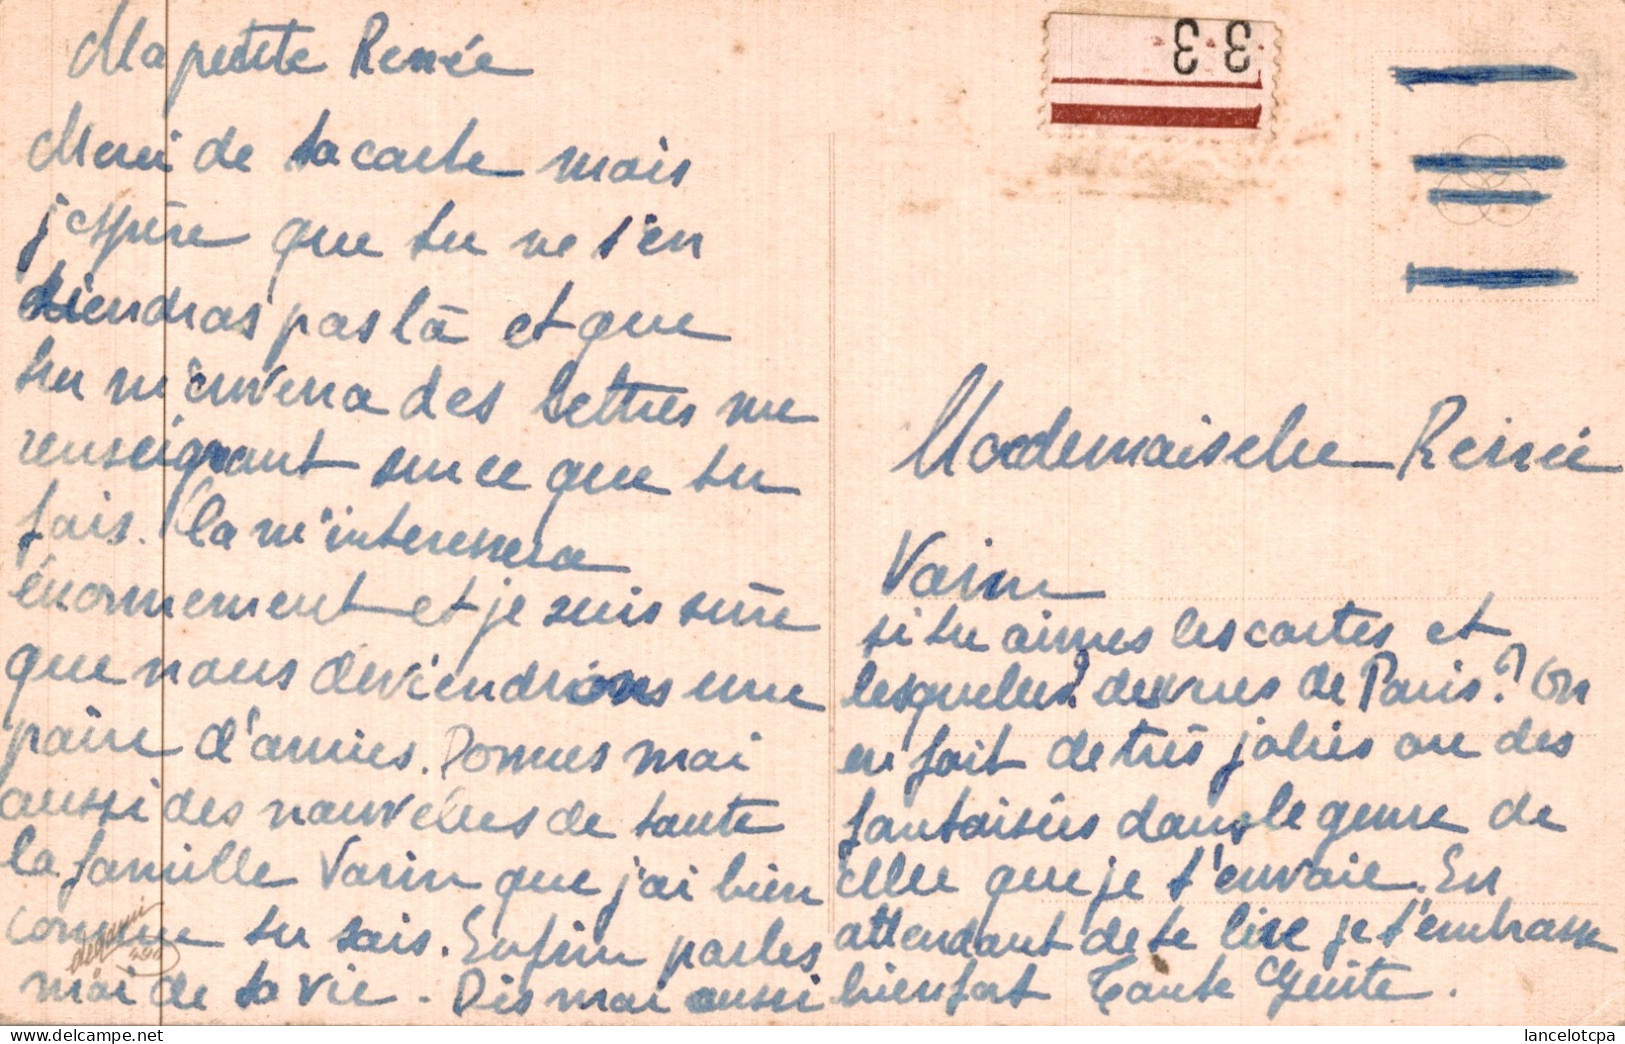 Ma petite Renée
Merci de ta carte mais
j'espère que tu ne t'en
tiendras pas là et que
tu m'enverra des lettres me
renseignant sur ce que tu
fais. Cela m'interessera
énormement et je suis sûre
que nous deviendrions une
paire d'amies. Donnes moi
aussi des nouvelles de toute
la famille Varin que j'ai bien
connue tu sais. Enfin parles
moi de ta vie. Dis moi aussi
3.3
Mademoiselle Renée
Varin
si tu aimes les cartes et
lesquelles? des vues de Paris? On
en fait de très jolies ou des
fantaisies dans le genre de
celle que je t'envoie. En
attendant de te lire je t'embrasse
bien fort Tante Guite.
lancelotcpa